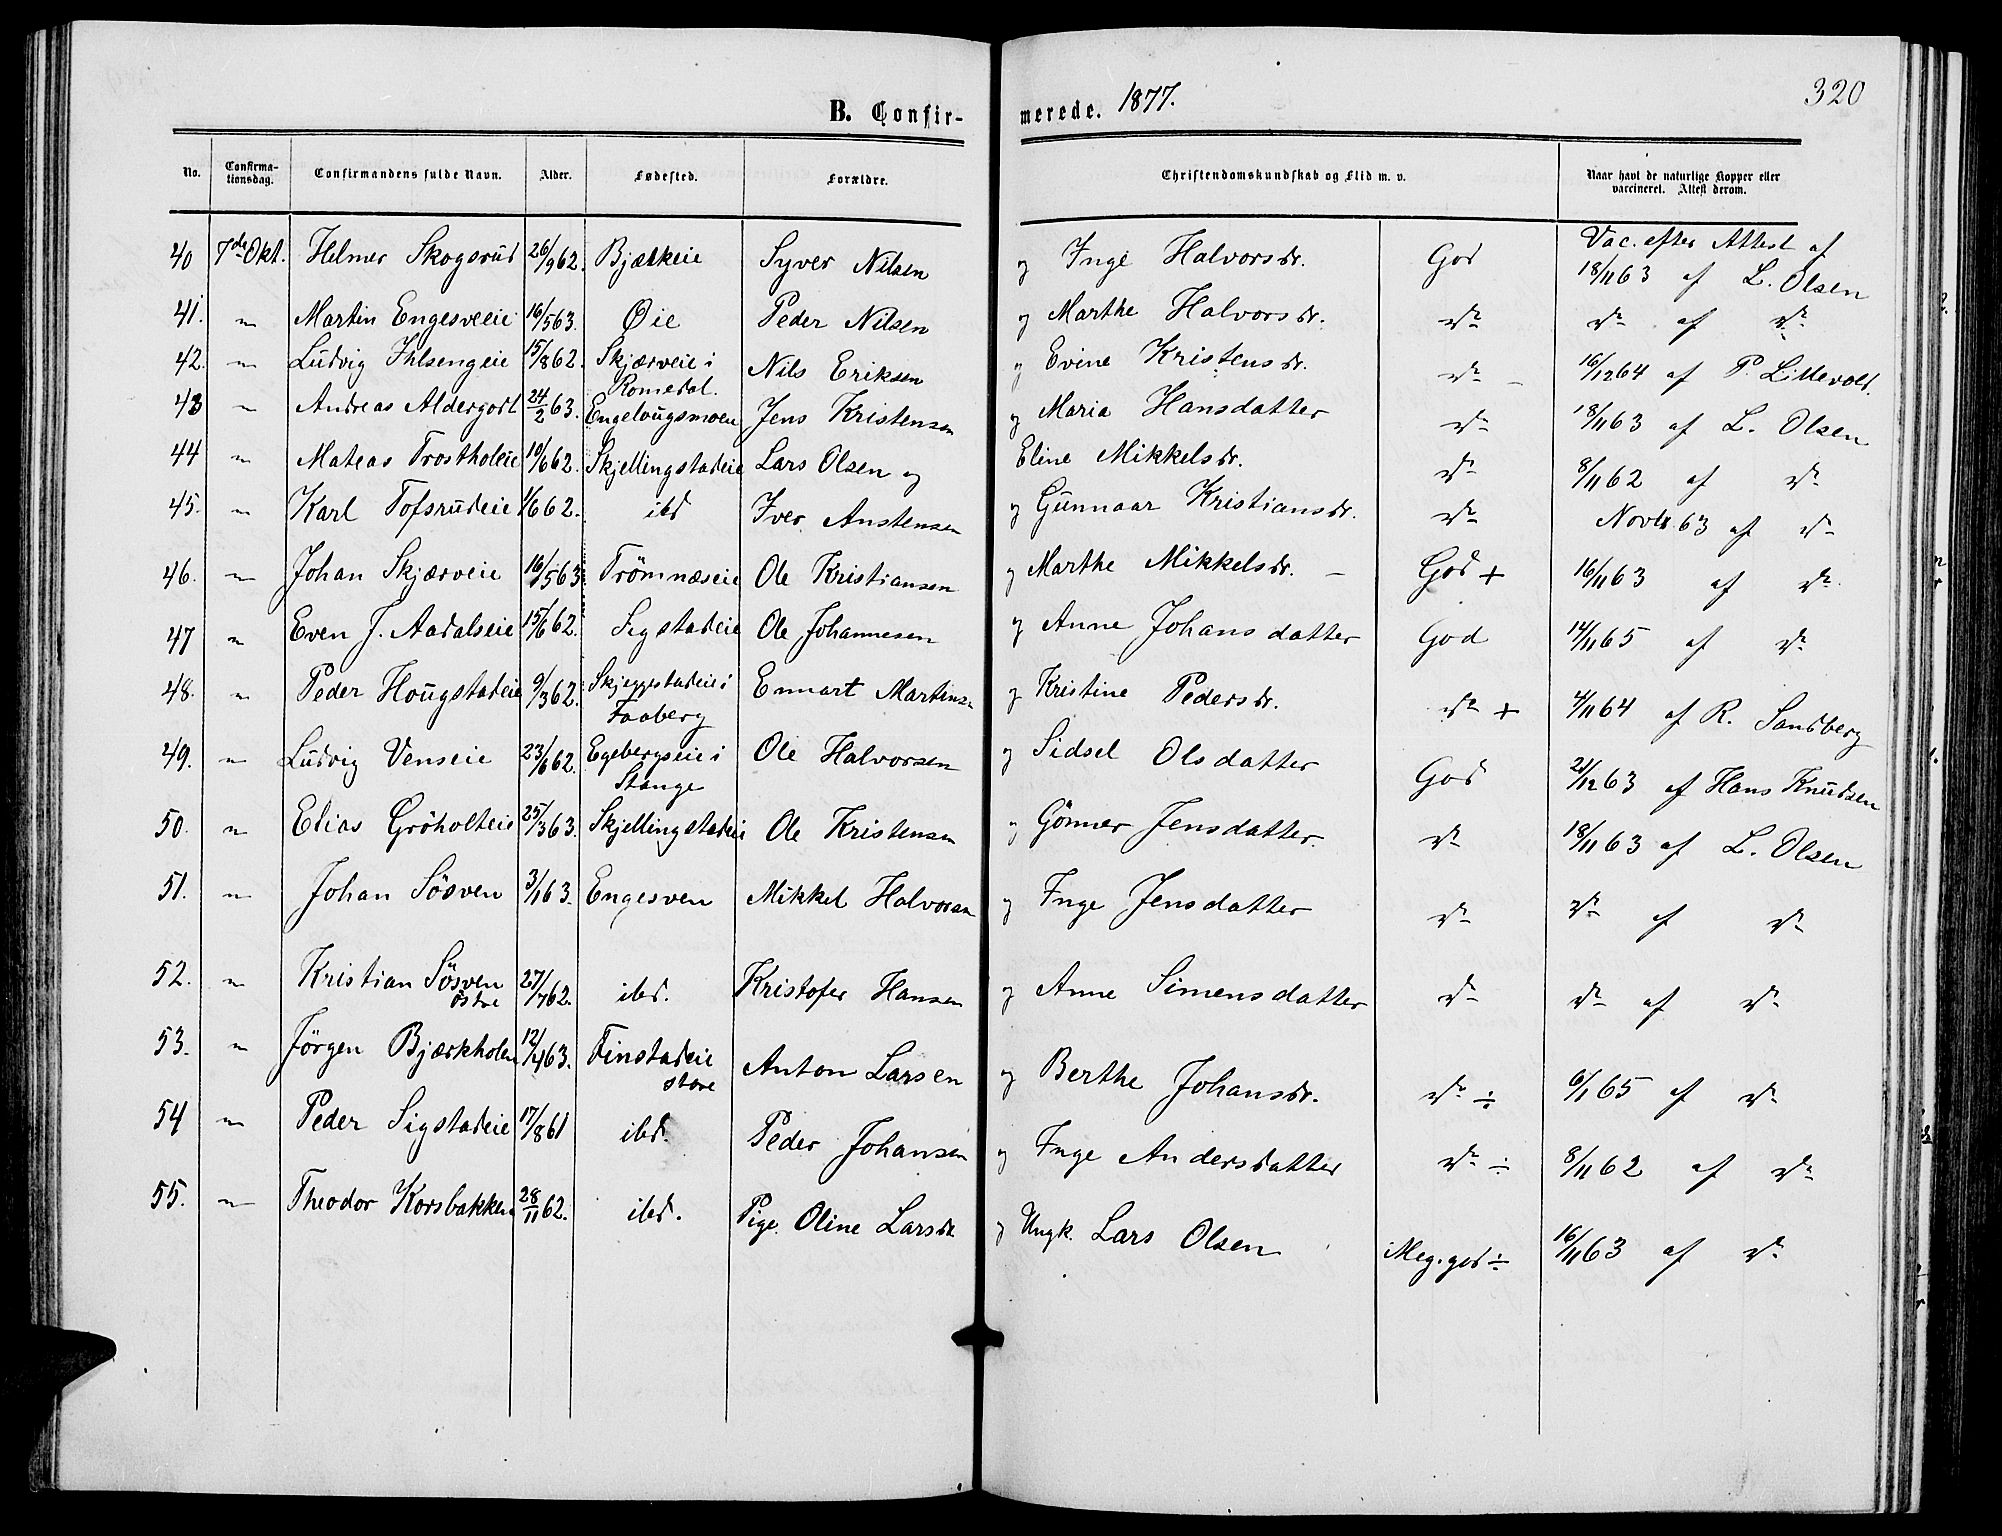 320
B. Confirmerede. 1877.
No. Confirmationsdag. Confirmandens fulde Navn. Alder. Fødested. Forældre. Christendomskundskab og Flid m. v. Naar havt de naturlige Kopper eller vaccineret. Attest derom.
40 7de Okt. Helmer Skogsrud 26/9 62. Bjælkeie Syver Nilsen og Inge Halvorsdr. God Vac. efter Attest af 18/11 63 af L. Olsen
41. " Martin Engesveeie 16/5 63. Øie Peder Nilsen og Marthe Halvorsdr. do do af do
42. " Ludvig Ihlsengeie 15/8 62. Skjærveie i Romedal. Nils Eriksen og Evine Kristensdr. do 16/12 64 af P. Lillevold.
43 " Andreas Aldergort 24/2 63. Engelougsmoen Jens Kristensen og Maria Hansdatter do 18/11 63 af L. Olsen
44 " Mateas Trostholeie 10/6 62. Skjellingstadeie Lars Olsen og Eline Mikkelsdr. do 8/11 62 af do
45. " Karl Tofsrudeie 1/6 62. ibd Iver Anstensen og Gunnaar Kristiansdr. do Novbr. 63 af do
46. " Johan Skjærveie 16/5 63 Trömnæseie Ole Kristiansen og Marthe Mikkelsdr. – God + 16/11 63 af do
47 " Even J. Aadalseie 15/6 62. Sigstadeie Ole Johannesen og Anne Johansdatter God 14/11 65 af do
48. " Peder Hougstadeie 9/3 62. Skjeggestadeie i Faaberg Ennart Martinsen og Kristine Pedersdr. do + 4/11 64 af R. Sandberg
49. " Ludvig Venseie 23/6 62. Egebergseie i Stange Ole Halvorsen og Sidsel Olsdatter God 21/12 63 af Hans Knudsen
50. " Elias Gröholteie 25/3 63. Skjellingstadeie Ole Kristensen og Gönner Jensdatter. do 18/11 63 af L. Olsen
51. " Johan Sösven 3/1 63. Engesven Mikkel Halvorsen og Inge Jensdatter do do af do
52. " Kristian Sösven östre 27/7 62. ibd. Kristofer Hansen og Anne Simensdatter do do af do
53. " Jörgen Bjærkholen 12/4 63. Finstadeie store Anton Larsen og Berthe Johansdr. do ÷ 6/1 65 af do
54 " Peder Sigstadeie 17/8 61 ibd. Peder Johansen og Inge Andersdatter do ÷ 8/11 62 af do
55. " Theodor Korsbakken 28/11 62. ibd. Pige Oline Larsdr og Ungk. Lars Olsen Meg. god ÷ 16/11 63 af do